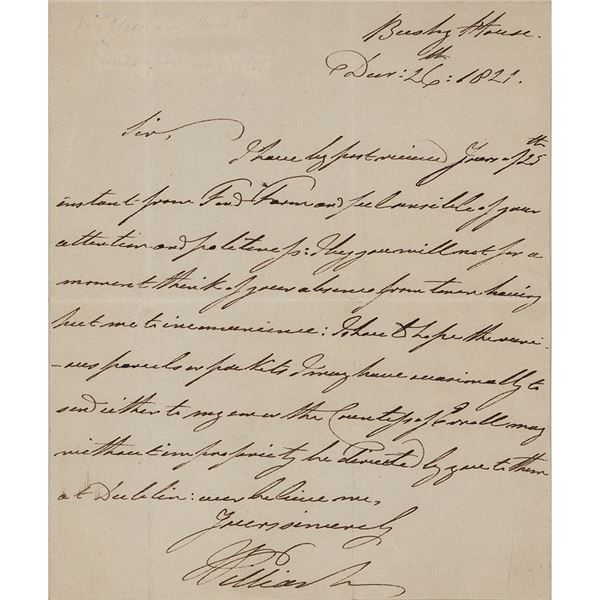 Bushy House.
Decr: 26th: 1821.
Sir,
I have by post received Yours of 25th
instant from Farm and feel sensible of your
attention and politeness: I beg you will not for a
moment think of your absence from town having
put me to inconvenience: I have to hope the vari-
-ous parcels or packets I may have occasionally to
send either to my son or the Countess of Erroll may
without impropriety be directed by you to them
at Dublin: ever believe me,
Yours sincerely
William